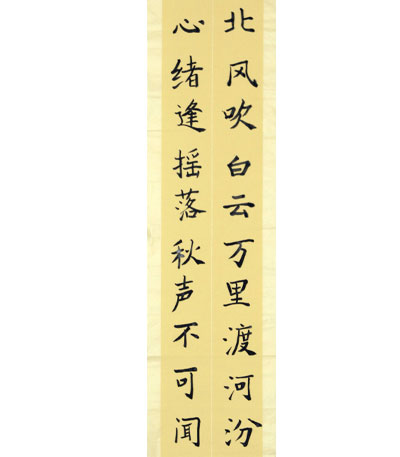 北风吹白云万里渡河汾
心绪逢摇落秋声不可闻